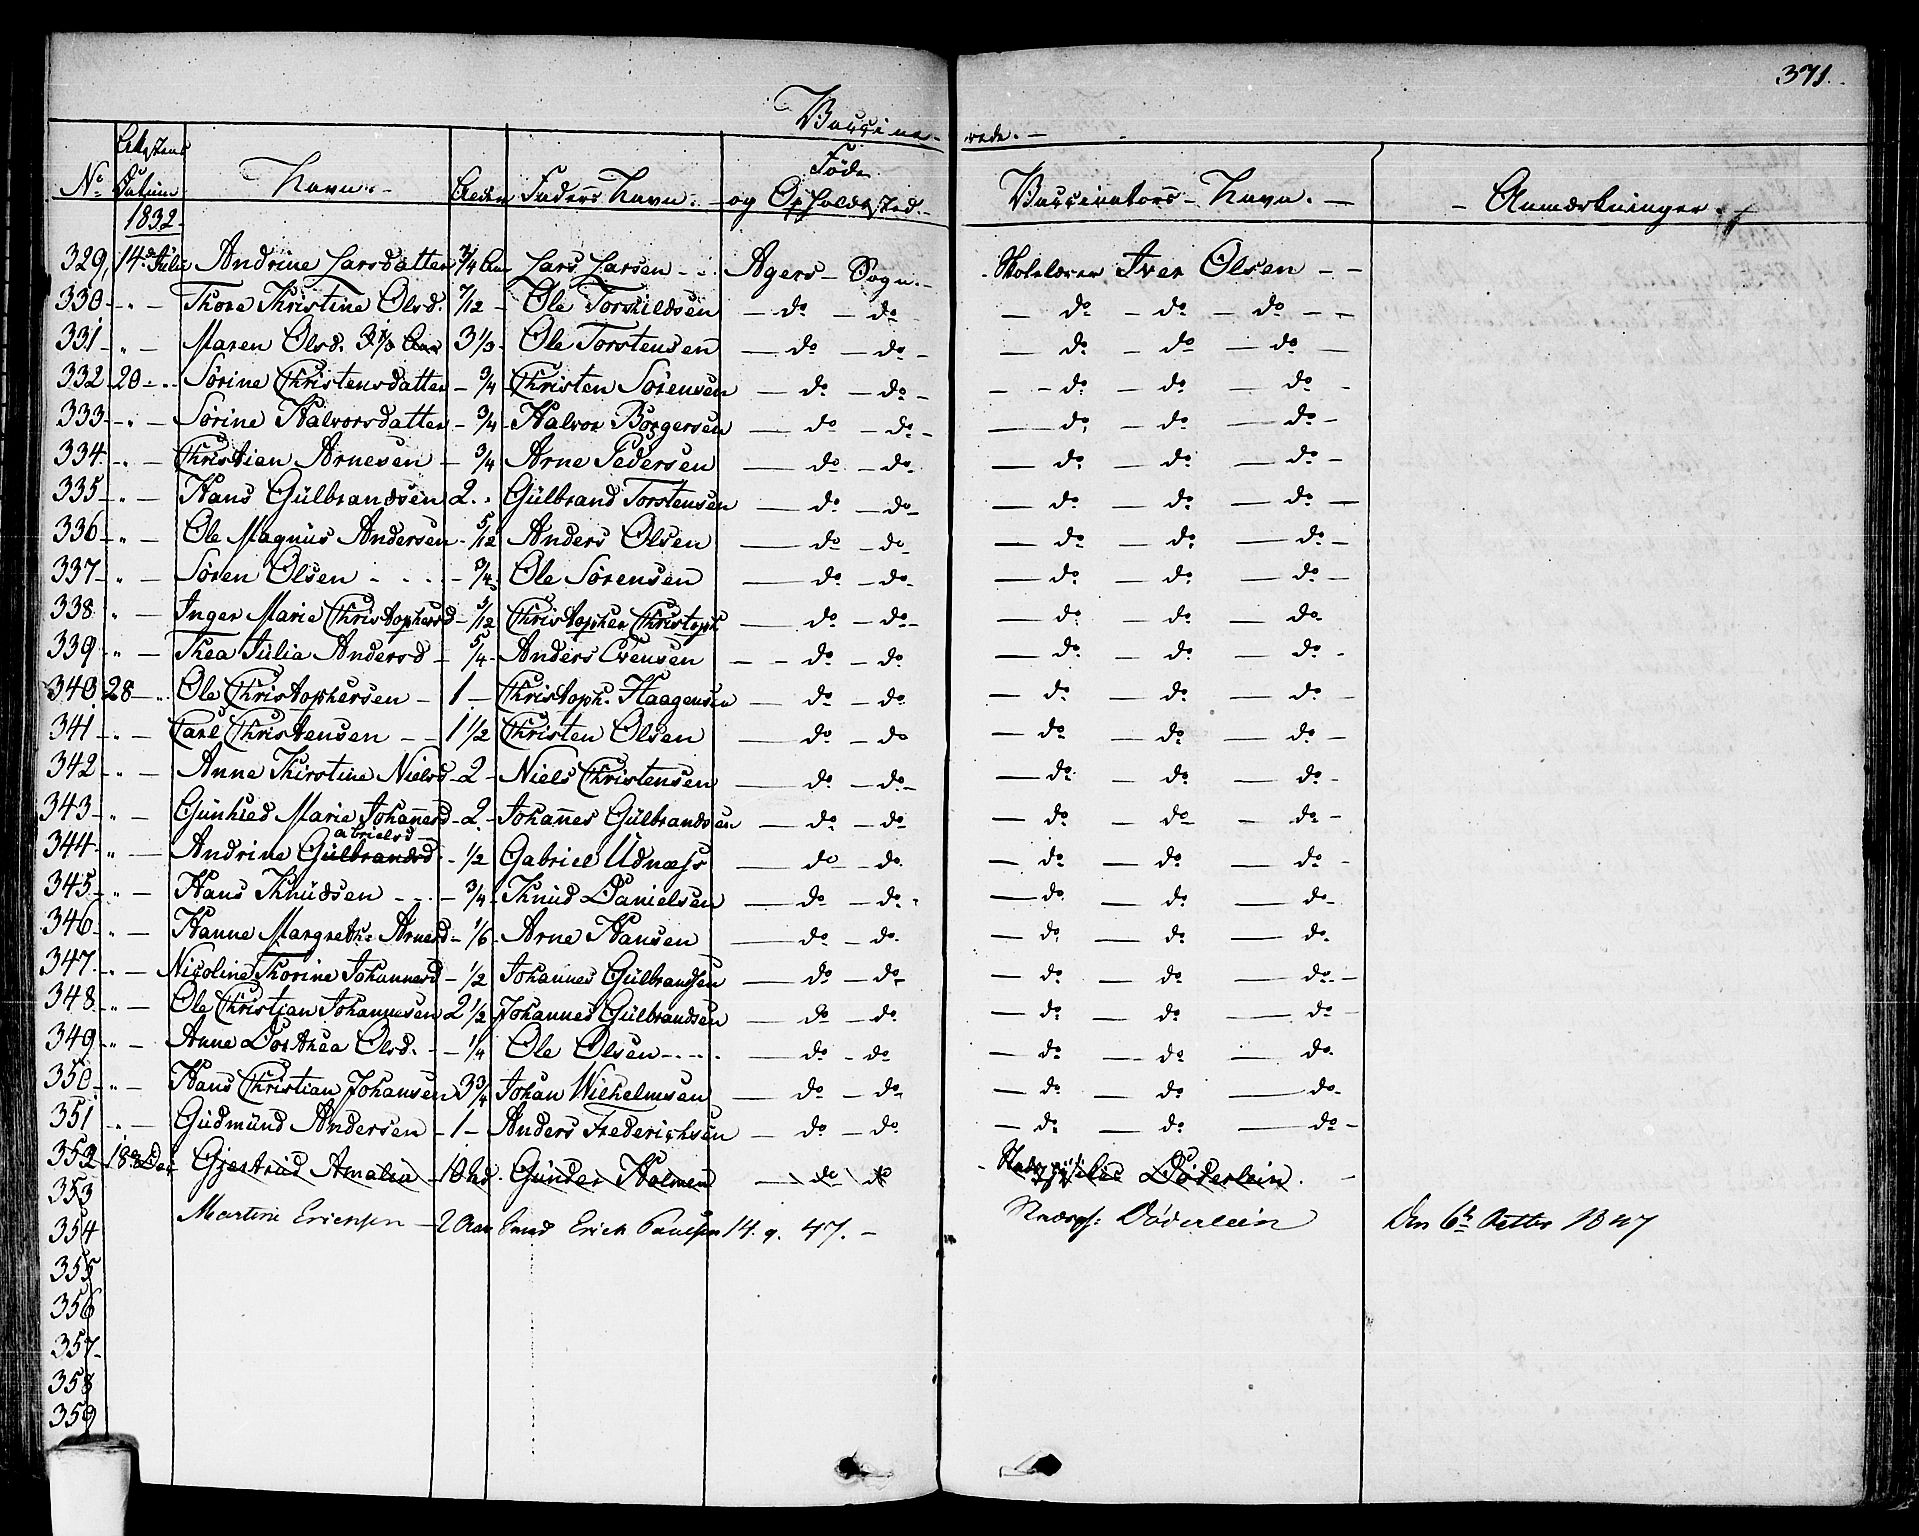 371.
Vaccine- rede. -
No Attestens Datum Navn. Alder Faders Navn. Føde og Opholdssted. Vaccinateurs Navn. - Anmærkninger.
1832.
329, 14de Julii Andrine Larsdatter 3/4 Aar Lars Larsen - - Agers - Sogn. - Skolelærer Iver Olsen - -
330 - " - Thore Kristine Olsd. 7/12 - Ole Torkildsen - do - do - do - do - do - -
331 - " - Maren Olsd. 3 1/3 Aar 3 1/3. Ole Torstensen - do - do - - do - do - do -
332 - 20 - " Sørine Christensdatter - 3/4 Christen Sørensen - do - do - - do - do - do -
333 - " - Sørine Halvorsdatter - 3/4 Halvor Børgersen - do - do - - do - do - do -
334 - " - Christian Arnesen - 3/4 Arne Pedersen - do - do - do - do - do -
335 - " - Hans Gülbrandsen 2. Gülbrand Torstensen - do - do - - do - do - do -
336 - " - Ole Magnüs Andersen - 5/12 Anders Olsen - do - do - - do - do - do -
337 - " - Søren Olsen - - - - 3/4. Ole Sørensen - do - do - - do - do - do -
338 " - Inger Marie Christophersd - 5/12 Christopher Christoph - do - do - - do - do - do -
339 - " - Thea Julia Andersd - 5/4 - Anders Evensen - - do - do - do - do - do -
340 28 - " Ole Christophersen - 1 - Christoph. Haagensen - do - do - do - do - do -
341 - " - Carl Christensen - - 1 1/2 Christen Olsen - do - do - do - do - do -
342 - " - Anne Kirstine Nielsd - 2 - Niels Christensen - do - do - - do - do - do -
343 - " - Gunhild Marie Johannesd - 2. - Johannes Gülbrandsen - do - do - do - do - do -
abrielsd
344 - " - Andrine Gülbrandsd. - 1/2 Gabriel Udnæss - do - do - do - do - do -
345 - " - Hans Knüdsen - - - 3/4 - Knüd Danielsen - do - do - - do - do - do -
346 - " - Hanne Margreth: Arnesd - 1/6 - Arne Hansen - do - do - do - do - do
347. - " - Nicoline Thorine Johannesd - 1/2 Johannes Gülbrandsen - do - do - - do - do - do -
348 - " - Ole Christian Johannesen 2 1/2 Johannes Gülbrandsen - do - do - do - do - do -
349 - " - Anne Dorthea Olsd. - - 1/4 Ole Olsen - - - - do - do - do - do - do
350 - " - Hans Christian Johansen 3 3/4 Johan Wilhelmsen - do - do - do - do - do -
351 - " - Gudmünd Andersen - 1 - Anders Frederichsen - do - do - do - do - do -
352 - 18de Gjertrüd Amalia - 10 Gunder Holmen - do - do - Døderlein. -
353
354 Martin Ericksen - 2 Aar Erick Paulsen 14. 9. 47. - Døderlein Den 6te Octbr 1847
355
356
357 -
358
359